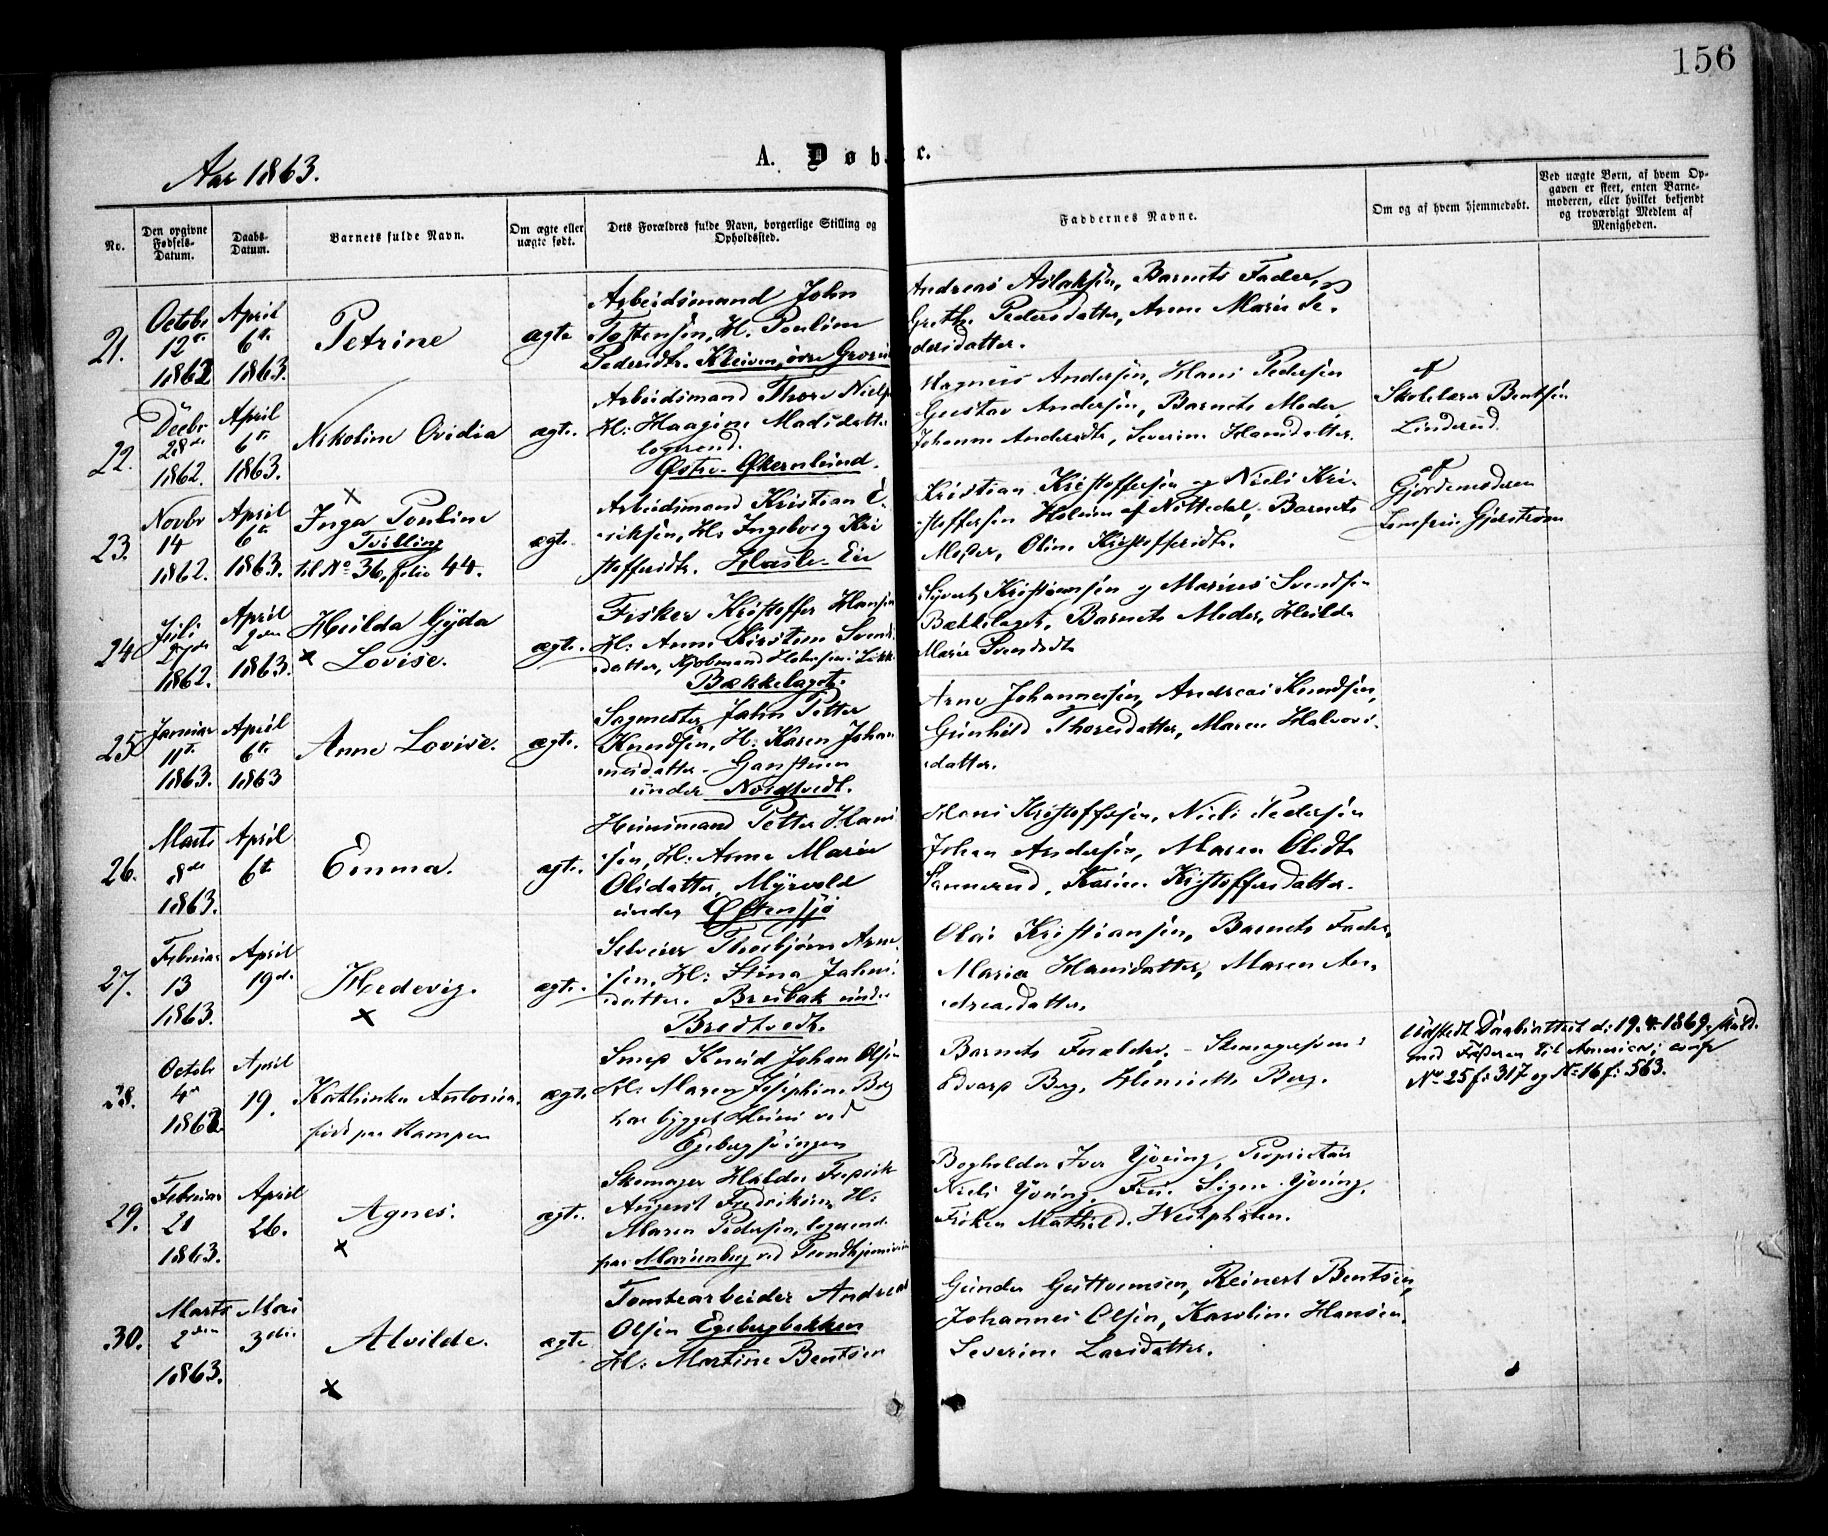 156
Aar 1863.
A. Døbte.
No.
Den opgivne Fødsels-Datum.
Daabs-Datum.
Barnets fulde Navn.
Om ægte eller uægte født.
Dets Forældres fulde Navn, borgerlige Stilling og Opholdssted.
Faddernes Navne.
Om og af hvem hjemmedøbt.
Ved uægte Børn, af hvem Opgaven er skeet, enten Barnemoderen, eller hvilket bekjendt og troværdigt Medlem af Menigheden.
21.
Octobr 12te 1862
April 6te 1863.
Petrine
ægte
Arbeidsmand John
Tostensen, H. Pouline
Pedersdtr. Kleiven, øvre
Andreas Aslaksen, Barnets Fader,
Grethe Pedersdatter, Anne Marie Pe-
dersdatter.
22.
Decbr 28de 1862.
April 6te 1863.
Nikoline Ovidia
ægte.
Arbeidsmand Thore Niels
H. Haagine Madsdatter
logerend.
Østre Økernlund.
Magnus Andersen, Hans Pedersen
Gustav Andersen, Barnets Moder,
Johanne Andersdtr, Severine Hansdatter.
af
Skolelærer Bentsen
Linderud.
23.
Novbr 14 1862.
April 6te 1863.
Inga Pouline
Tvilling
til No 36, folio 44.
ægte.
Arbeidsmand Kristian E-
riksen, H. Ingeborg Kri
stoffersdtr. Hasle-Eie
Kristian Kristoffersen og Niels Kri-
stoffersen Holm af Nittedal, Barnets
Moder, Oline Kristoffersdtr.
af
Gjordemoderen
Jomfru Gjerstrøm
24.
Juli 27de 1862.
April 2den 1863.
Hilda Gyda
Lovise.
ægte.
Fisker Kristoffer Hansen
H. Anne Kirstine Svends
datter, Kjøbmand
Bækkelaget.
Syvert Kristiansen og Marius Svendsen
Bækkelaget, Barnets Moder, Hilda
Marie Svendsdtr
25.
Januar 11te 1863.
April 6te 1863
Anne Lovise.
ægte.
Sagmester Jahn Petter
Knudsen, H. Karen Johan
nesdatter-
under Nordtvedt.
Arne Johannesen, Andreas Knudsen,
Gunhild Thoresdatter, Maren Halvors-
datter.
26.
Marts 8de 1863.
April 6te
Emma.
ægte.
Huusmand Petter Hans
sen, H. Anne Marie
Olsdatter, Myrvold
under Østensjø
Hans Kristoffersen, Niels Pedersen
Johan Andersen, Maren Olsdtr
Sannerud, Karine Kristoffersdatter.
27.
Februar 13 1863.
April 19de
Hedevig.
ægte.
Selveier Thorbjørn Arne-
sen, H. Stina Jahns-
datter. Breibak under
Bredtvedt.
Olai Kristiansen, Barnets Fader,
Marie Hansdatter, Maren An-
dreasdatter.
28.
Octobr 4de 1862
April 19.
Kathinka Antonia.
født paa Kampen
ægte
Smed Knud Johan Olsen
H. Maren Josephine Berg
har bygget Huus ved
Egebergsvingen
Barnets Forældre. - Skomagersvend
Edvard Berg, Henriette Berg.
Udstedt Daabsattest d: 19.4.1869, skuld.
med Faderen til America; conf
No 25 f: 317 og No 16 f: 563.
29.
Februar 21 1863.
April 26.
Agnes.
ægte.
Skomager Haldor Fredrik
August Fredriksen, H.
Maren Pedersen, logerend.
paa Marienberg ved Trondhjemsveien
Bogholder Iver Young, Proprietær
Niels Young, Fru Signe Young,
Frøken Mathild. Westphalen.
30.
Marts 2den 1863.
Mai 3die
Alvilde.
ægte
Tomtearbeider Andreas
Olsen Egebergbakken
H. Martine Bentsen
Gunder Guttormsen, Reinert Bentsen,
Johannes Olsen, Karoline Hansen,
Severine Larsdatter.